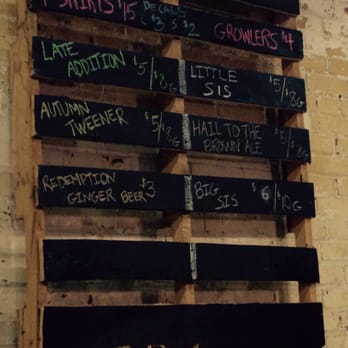 T-SHIRTS $15 DECALS
L $3 S $2
GROWLERS $4
LATE
ADDITION $5/$8G
LITTLE
SIS $5/$8G
AUTUMN
TWEENER $5/$8G
HAIL TO THE
BROWN ALE
REDEMPTION
GINGER BEER $3
BIG
SIS $6/$10G